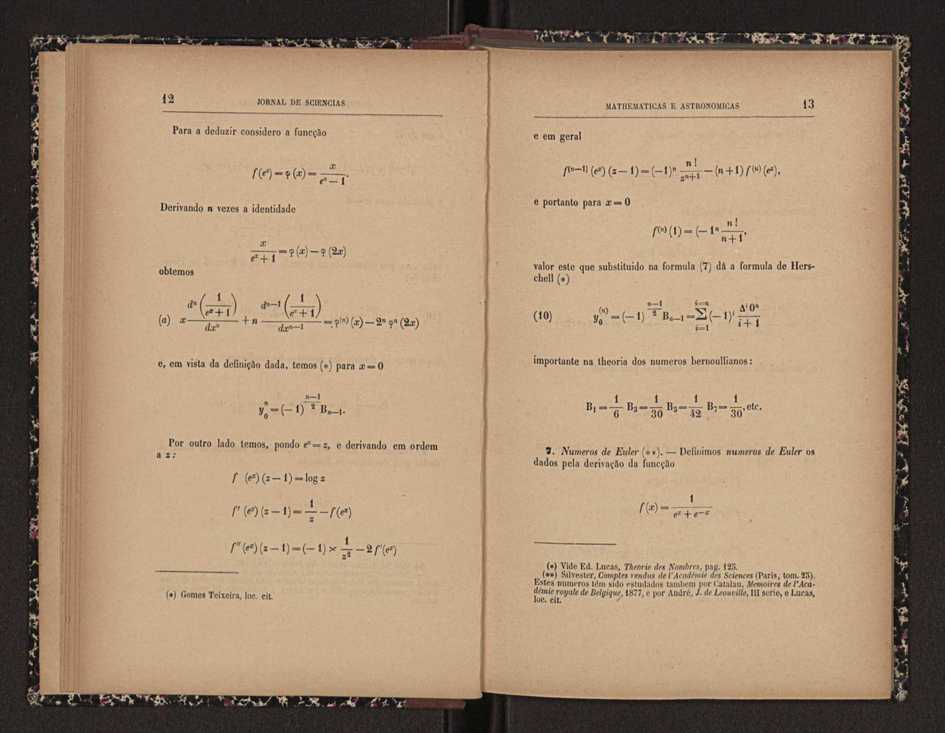 12 JORNAL DE SCIENCIAS
Para a deduzir considero a funcção
f(eˣ) = φ(x) = x / (eˣ − 1).
Derivando n vezes a identidade
x / (eˣ + 1) = φ(x) − φ(2x)
obtemos
(a) x dⁿ(1 / (eˣ + 1)) / dxⁿ + n dⁿ⁻¹(1 / (eˣ + 1)) / dxⁿ⁻¹ = φ⁽ⁿ⁾(x) − 2ⁿ φⁿ(2x)
e, em vista da definição dada, temos (*) para x = 0
y₀ⁿ = (−1)^((n−1)/2) Bₙ₋₁.
Por outro lado temos, pondo eˣ = z, e derivando em ordem
a z:
f (eˣ) (z − 1) = log z
f' (eˣ) (z − 1) = 1/z − f(eˣ)
f'' (eˣ) (z − 1) = (−1) × 1/z² − 2 f'(eˣ)
(*) Gomes Teixeira, loc. cit.
MATHEMATICAS E ASTRONOMICAS 13
e em geral
f⁽ⁿ⁻¹⁾ (eˣ) (z − 1) = (−1)ⁿ n! / zⁿ⁺¹ − (n + 1) f⁽ⁿ⁾ (eˣ),
e portanto para x = 0
f⁽ⁿ⁾ (1) = (− 1ⁿ n! / (n + 1),
valor este que substituido na formula (7) dá a formula de Hers-
chell (*)
(10) y₀⁽ⁿ⁾ = (−1)^((n−1)/2) Bₙ₋₁ = Σ_{i=1}^{i=n} (−1)ⁱ Δⁱ 0ⁿ / (i + 1)
importante na theoria dos numeros bernoullianos:
B₁ = 1/6 B₃ = 1/30 B₅ = 1/42 B₇ = 1/30, etc.
7. Numeros de Euler (**). — Definimos numeros de Euler os
dados pela derivação da funcção
f(x) = 1 / (eˣ + e⁻ˣ)
(*) Vide Ed. Lucas, Theorie des Nombres, pag. 125.
(**) Silvester, Comptes rendus de l'Académie des Sciences (Paris, tom. 25).
Estes numeros têm sido estudados tambem por Catalau, Memoires de l'Aca-
démie royale de Belgique, 1877, e por André, J. de Leouville, III serie, e Lucas,
loc. cit.